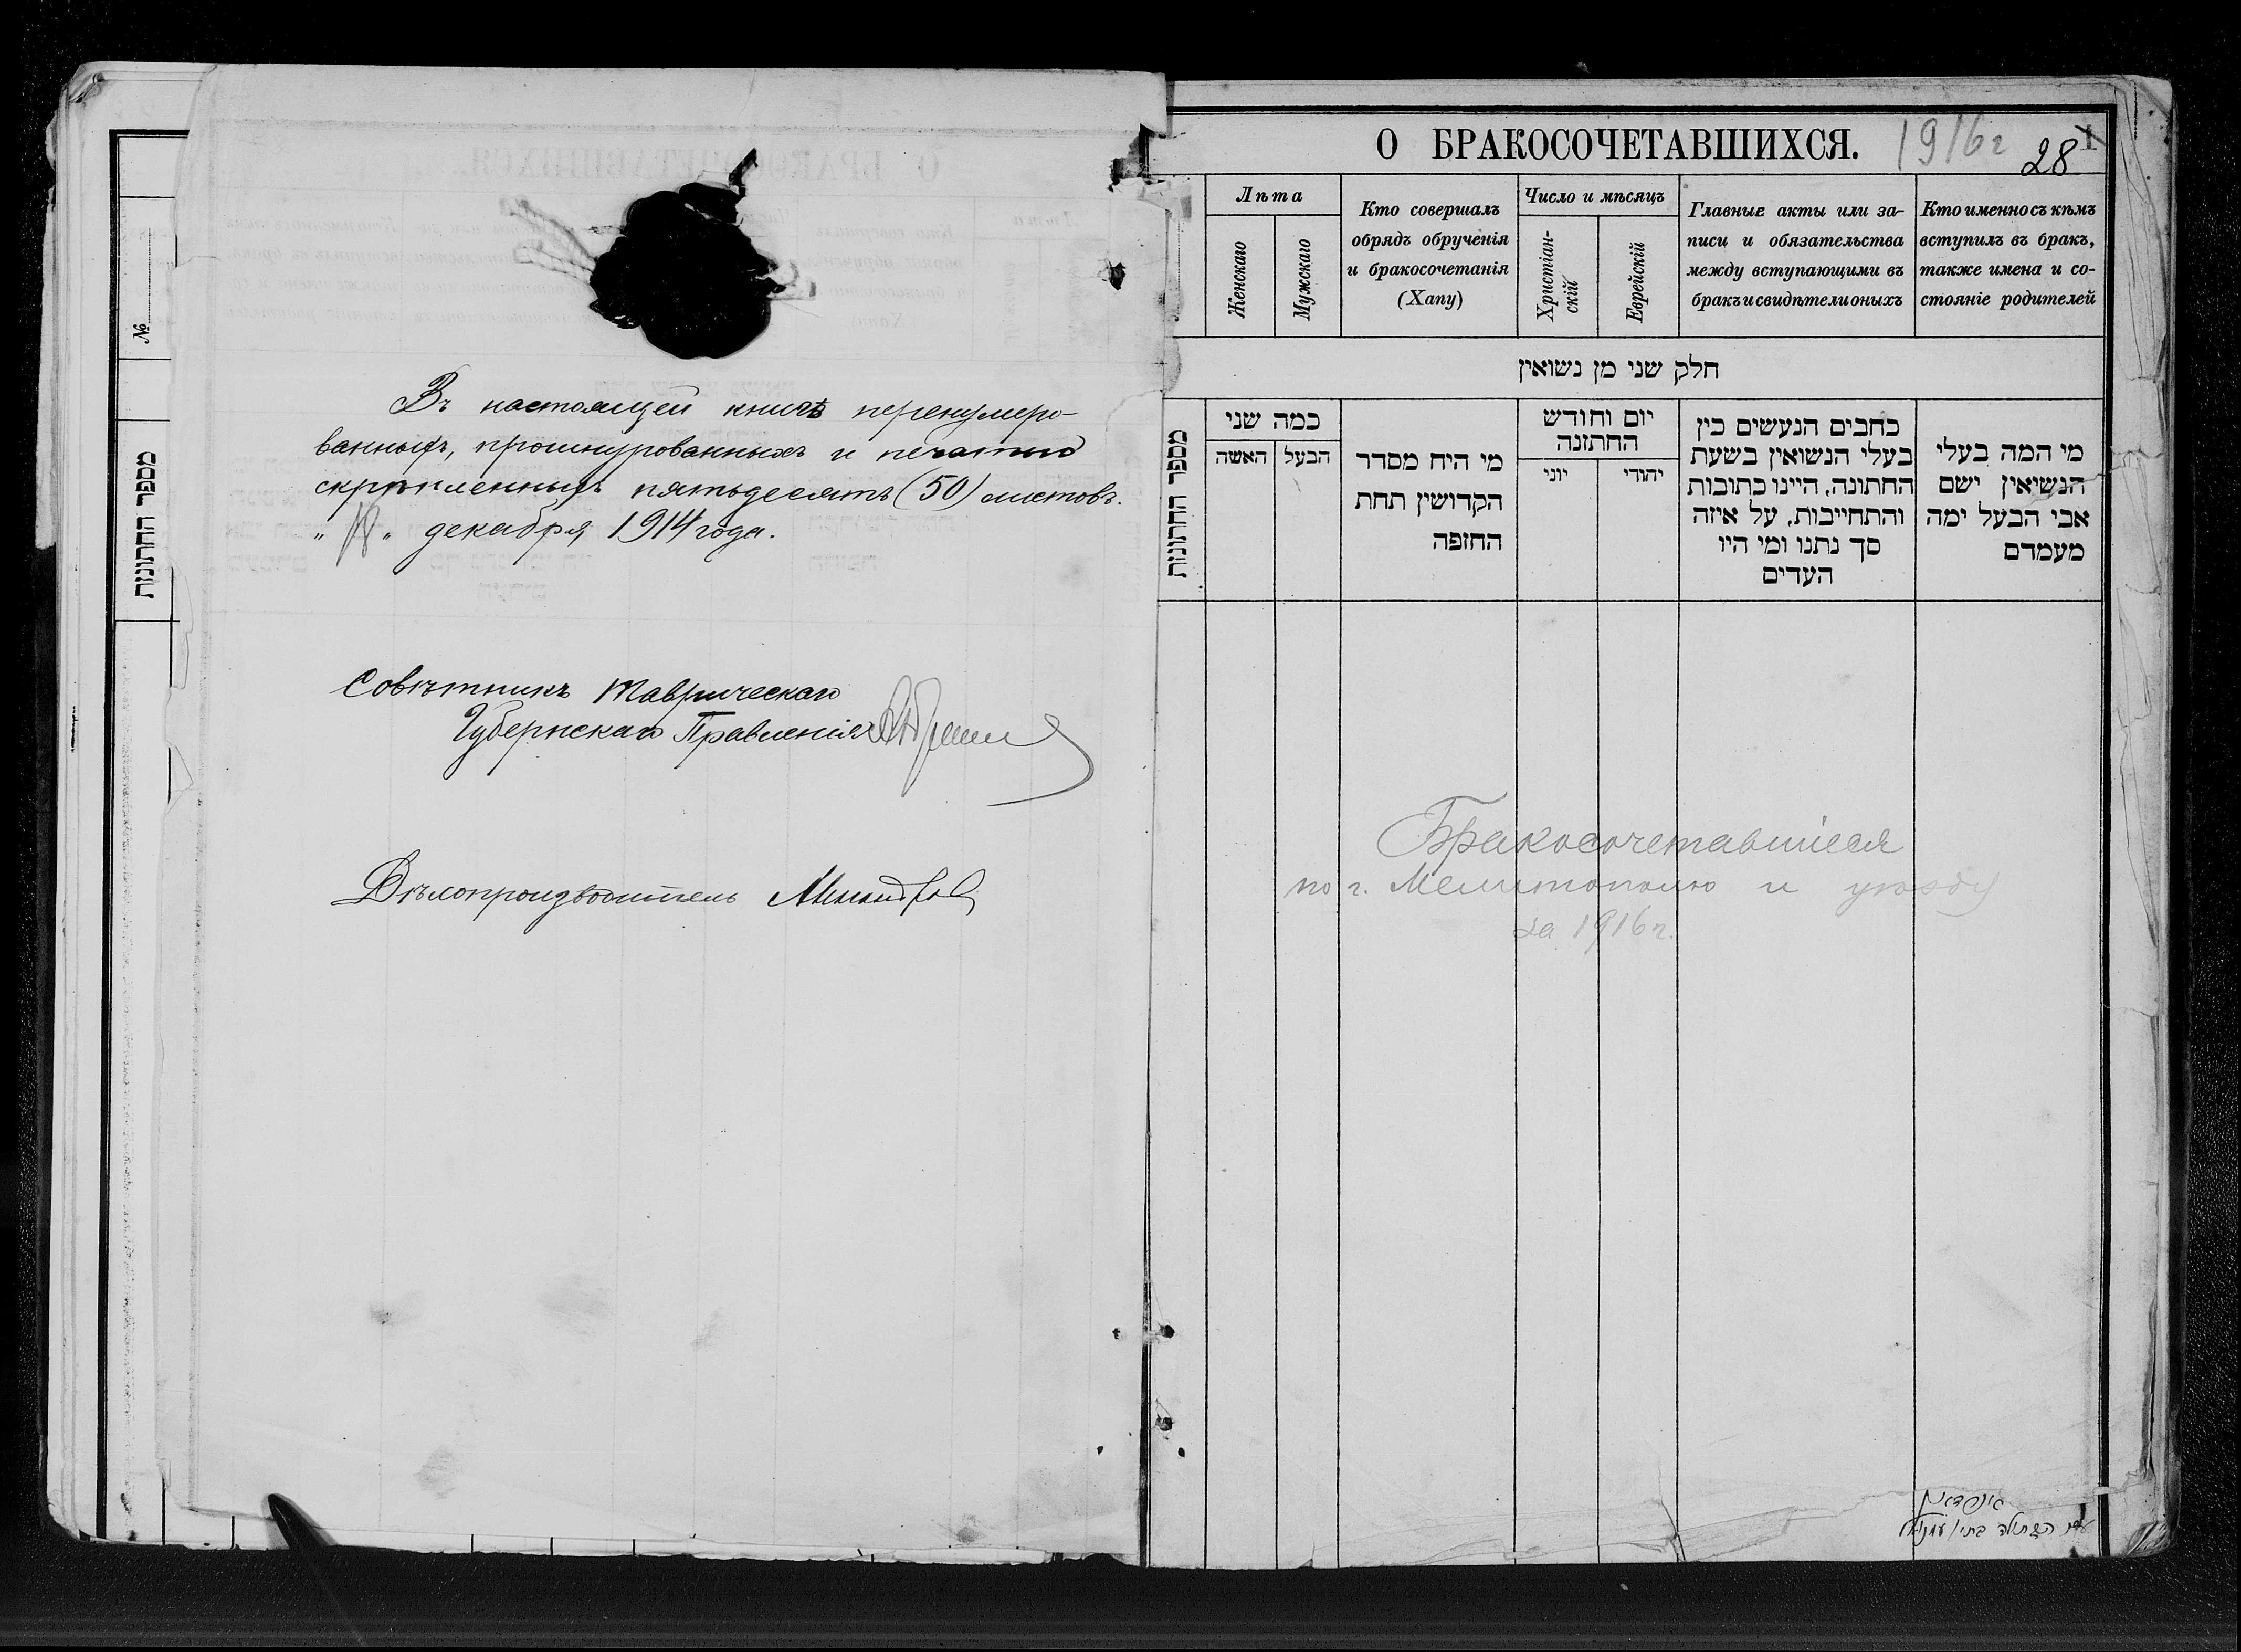 №
מספר החתונות
Въ настоящей книгѣ перенумеро-
ванныхъ, прошнурованныхъ и печатью
скрѣпленныхъ пятьдесятъ (50) листовъ.
декабря 1914 года.
Совѣтникъ Таврическаго
Губернскаго Правленія
Дѣлопроизводитель
О БРАКОСОЧЕТАВШИХСЯ.
1916 г
28
1
Лѣта
Женскаго
Мужскаго
Кто совершалъ
обрядъ обрученія
и бракосочетанія
(Хапу)
Число и мѣсяцъ
Христіан-
скій
Еврейскій
Главные акты или за-
писи и обязательства
между вступающими въ
бракъ и свидѣтели оныхъ
Кто именно съ кѣмъ
вступилъ въ бракъ,
также имена и со-
стояніе родителей
חלק שני מן נשואין
מספר החתונות
כמה שני
האשה
הבעל
מי היח מסדר
הקדושין תחת
החזפה
יום וחודש
החתזנה
יוני
יהודי
כחבים הנעשים כין
בעלי הנשואין בשעת
החתונה, היינו כתובות
והתחייבות, על איזה
סך נתנו ומי היו
העדים
מי המה בעלי
הנשיאין ישם
אבי הבעל ימה
מעמדם
Бракосочетавшіеся
по г. Мелитополю и уѣзду
за 1916 г.